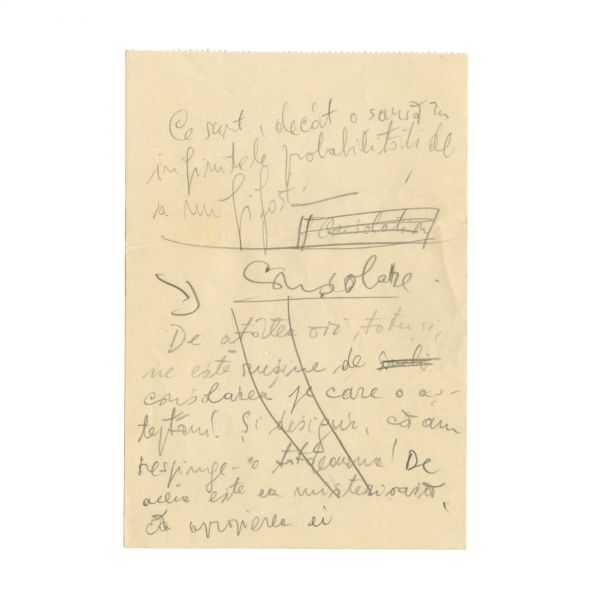 Ce sunt, decât o șansă în
infinitele probabilități de
a nu fi fost!
Consolation
Consolare.
De atâtea ori, totuși,
ne este rușine de
consolarea pe care o aș-
teptam! Și desigur, că am
respinge-o totdeauna! De
aceia este ea misterioasă,
că apropierea ei